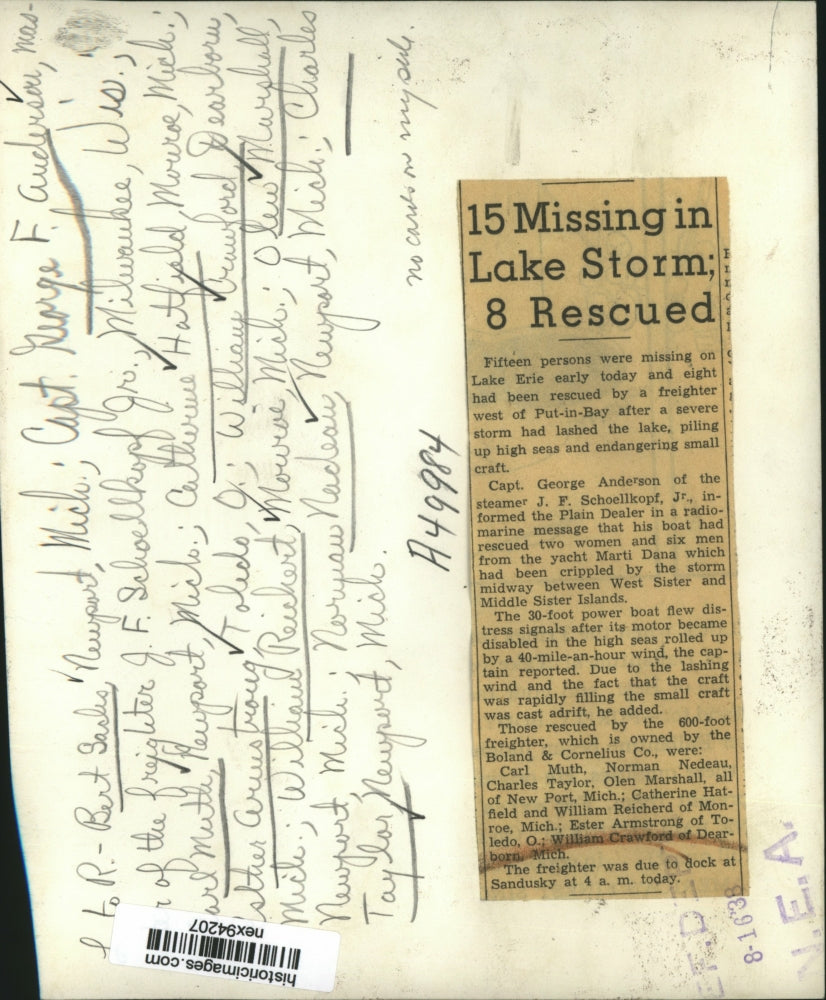 L to R. - Bert Sachs, Newport, Mich.; Capt. George F. Anderson, mas-
r of the freighter J. F. Schoellkopf Jr., Milwaukee, Wis.;
arl Muth, Newport, Mich.; Catherine Hatfield, Monroe, Mich.;
sther Armstrong, Toledo, O.; William Crawford, Dearborn,
Mich.; William Reichert, Monroe, Mich.; Olen Marshall,
Newport, Mich.; Norman Nadeau, Newport, Mich.; Charles
Taylor, Newport, Mich.
no cards on my sub.
A49984
15 Missing in
Lake Storm;
8 Rescued
Fifteen persons were missing on
Lake Erie early today and eight
had been rescued by a freighter
west of Put-in-Bay after a severe
storm had lashed the lake, piling
up high seas and endangering small
craft.
Capt. George Anderson of the
steamer J. F. Schoellkopf, Jr., in-
formed the Plain Dealer in a radio-
marine message that his boat had
rescued two women and six men
from the yacht Marti Dana which
had been crippled by the storm
midway between West Sister and
Middle Sister Islands.
The 30-foot power boat flew dis-
tress signals after its motor became
disabled in the high seas rolled up
by a 40-mile-an-hour wind, the cap-
tain reported. Due to the lashing
wind and the fact that the craft
was rapidly filling the small craft
was cast adrift, he added.
Those rescued by the 600-foot
freighter, which is owned by the
Boland & Cornelius Co., were:
Carl Muth, Norman Nedeau,
Charles Taylor, Olen Marshall, all
of New Port, Mich.; Catherine Hat-
field and William Reicherd of Mon-
roe, Mich.; Ester Armstrong of To-
ledo, O.; William Crawford of Dear-
born, Mich.
The freighter was due to dock at
Sandusky at 4 a. m. today.
8-1638
N.E.A.
historicimages.com
nex94207